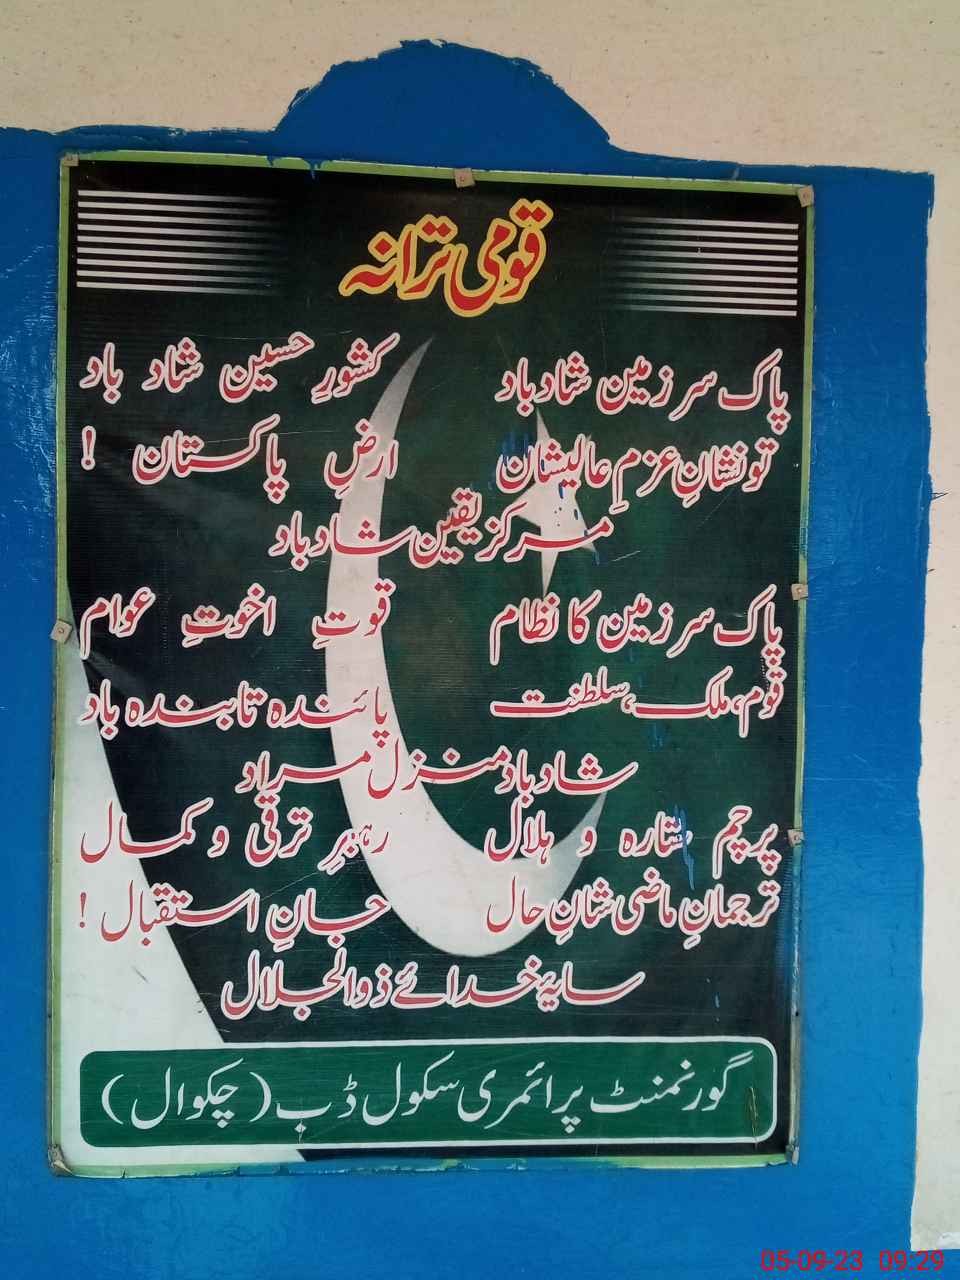 قومی ترانہ
پاک سرزمین شاد باد کشورِ حسین شاد باد
تو نشانِ عزمِ عالیشان ارضِ پاکستان !
مرکزِ یقین شاد باد
پاک سرزمین کا نظام قوتِ اخوتِ عوام
قوم، ملک، سلطنت پائندہ تابندہ باد
شاد باد منزل مراد
پرچم ستارہ و ہلال رہبرِ ترقی و کمال
ترجمانِ ماضی شانِ حال جانِ استقبال !
سایۂ خدائے ذوالجلال
گورنمنٹ پرائمری سکول ڈب (چکوال)
05-09-23 09:29